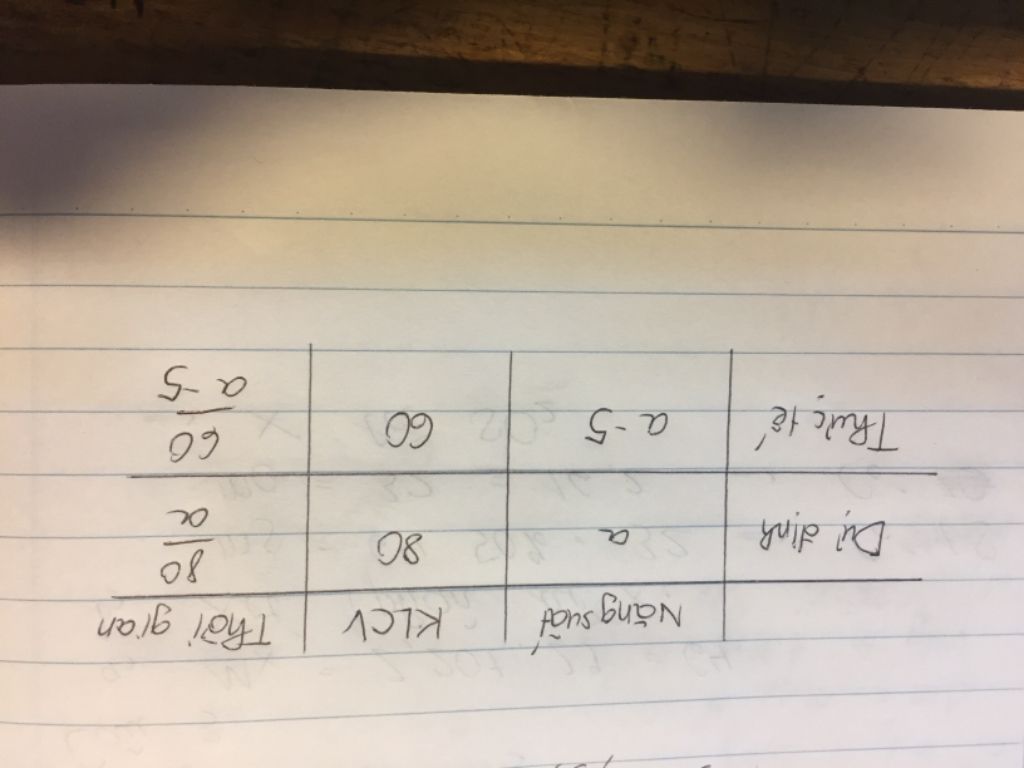 Năng suất KLCV Thời gian
Dự định a 80 80/a
Thực tế a-5 60 60/a-5